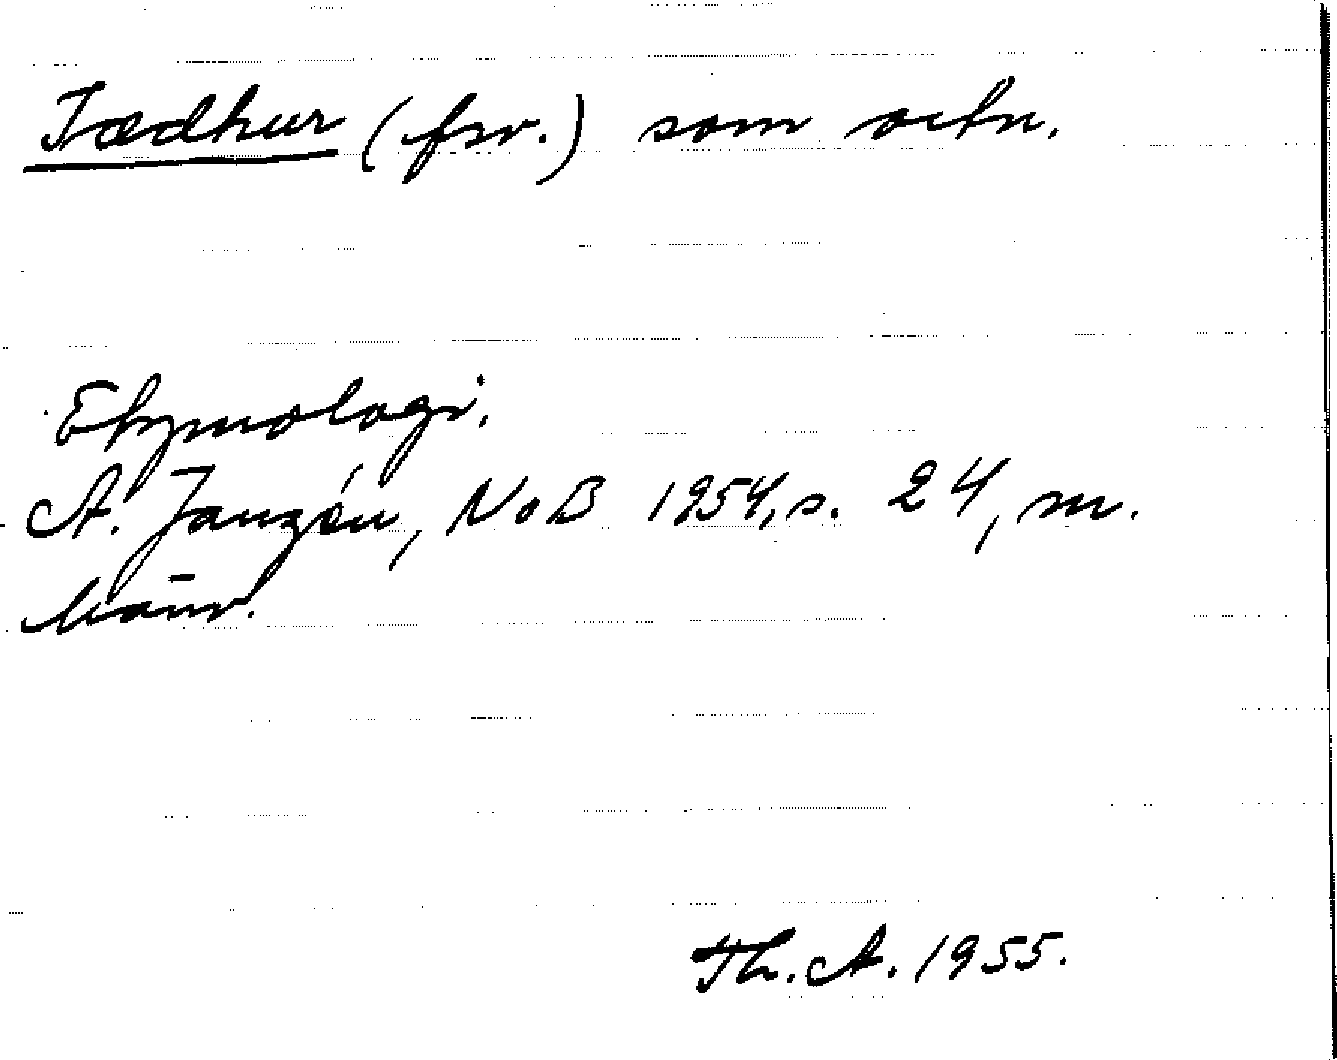 Jædhur (fsv.) som ortn.
Etymologi.
A. Janzén, NoB 1954, s. 24, m.
hänv.
Th. A. 1955.